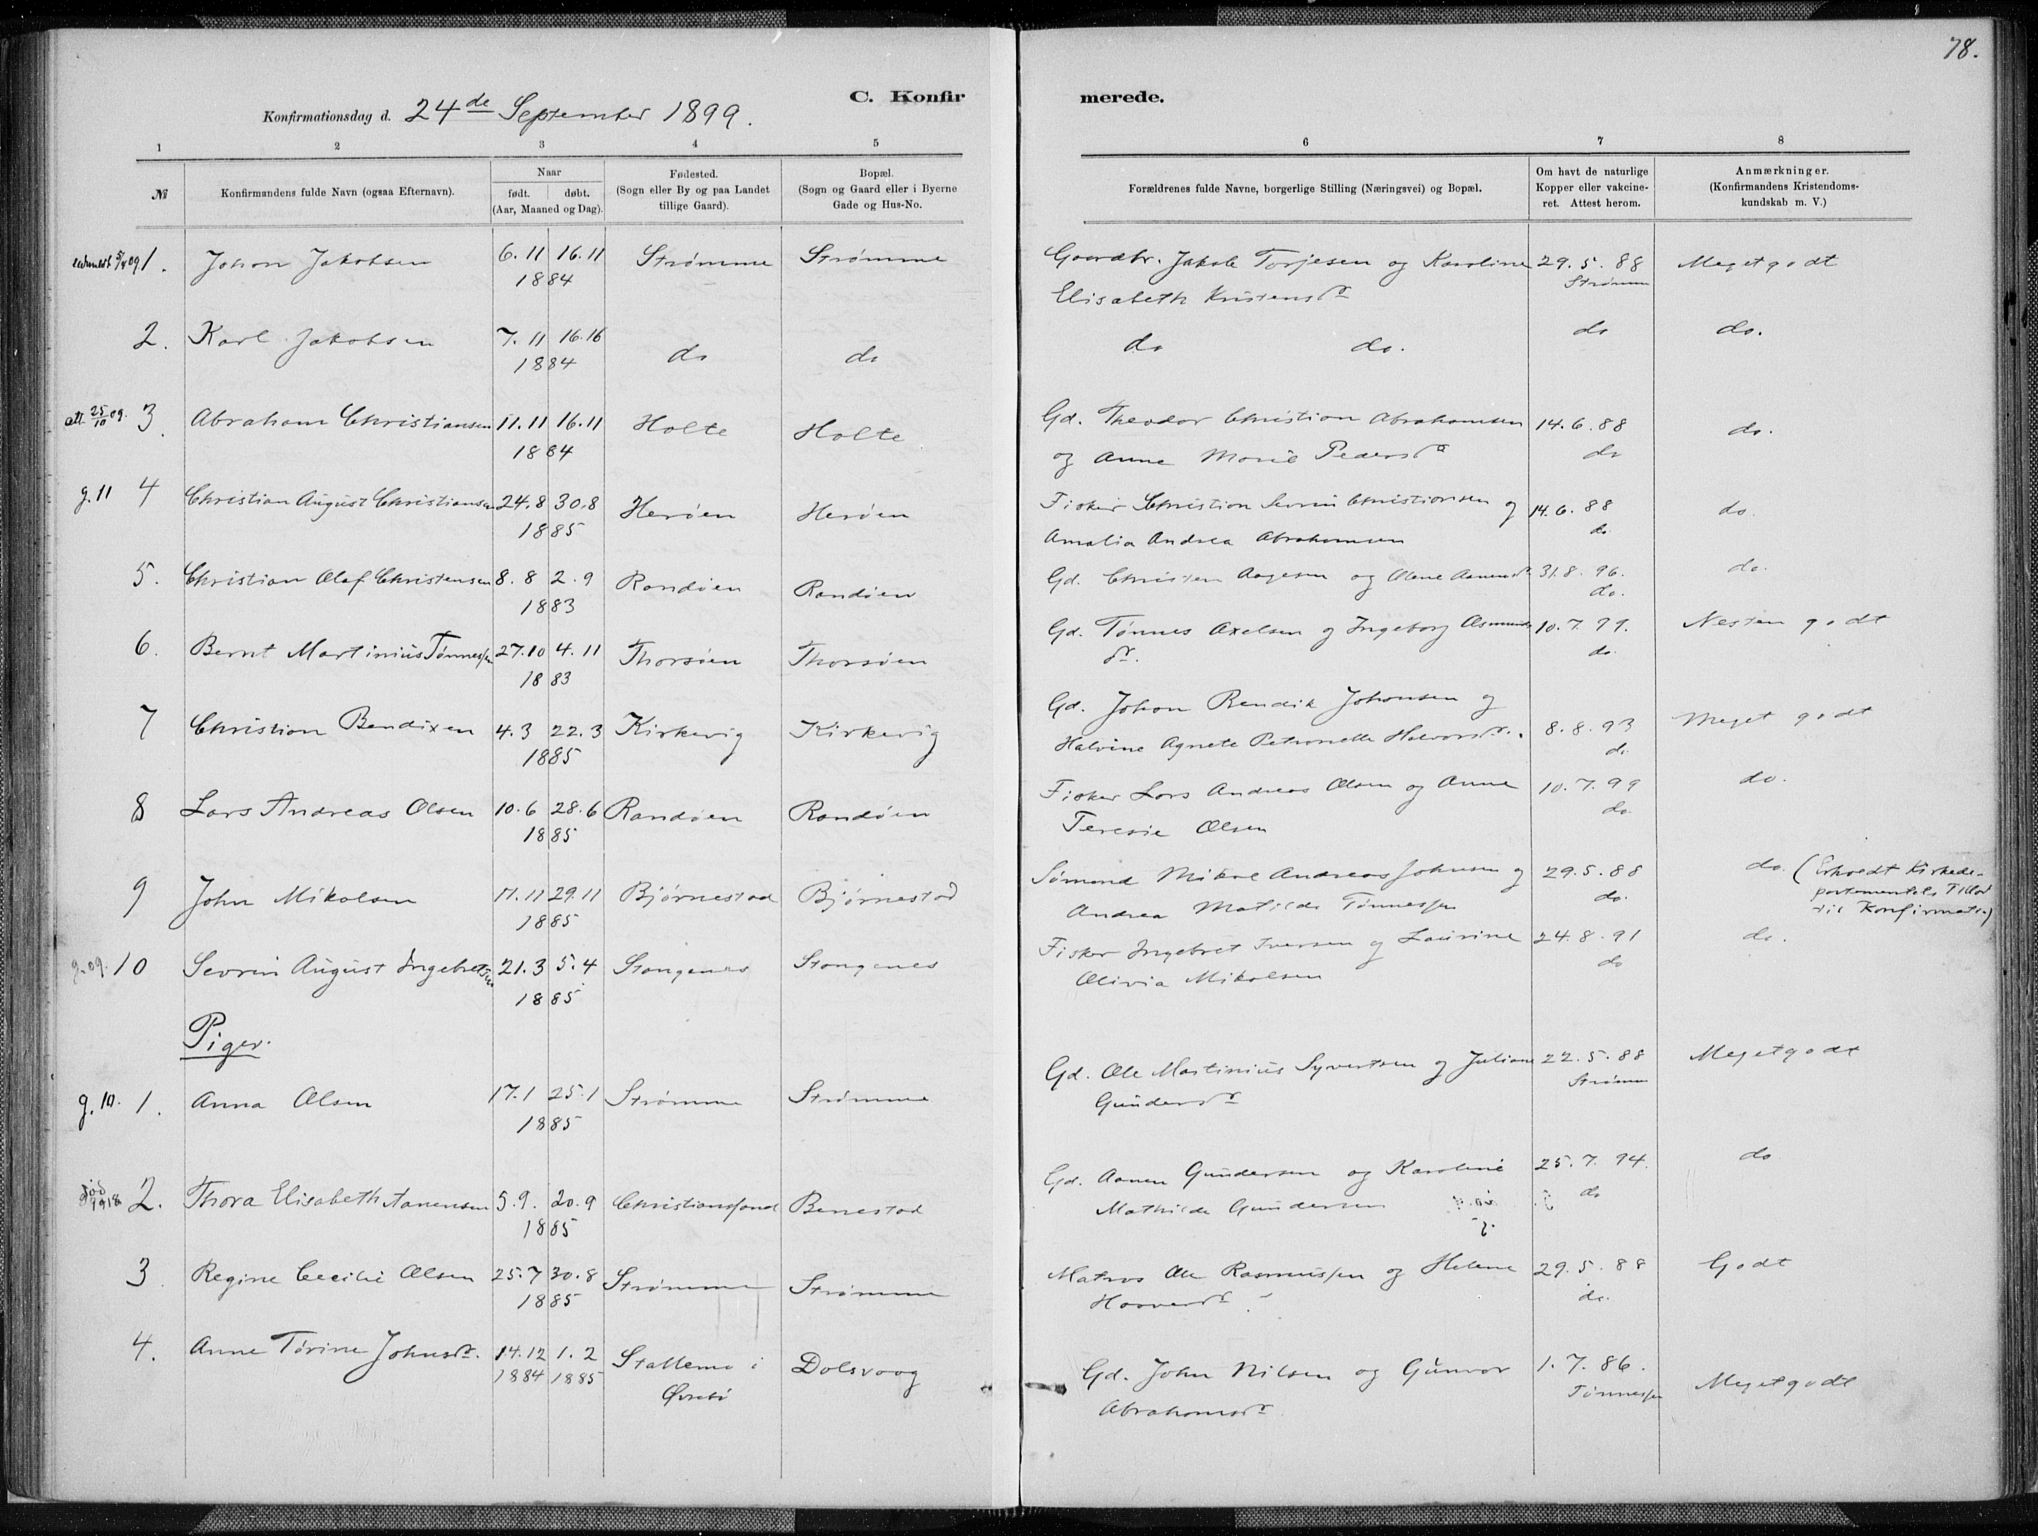 78.
C. Konfir merede.
Konfirmationsdag d. 24de September 1899.
1 2 3 4 5 6 7 8
№ Konfirmandens fulde Navn (ogsaa Efternavn).
Naar
født. døbt.
(Aar, Maaned og Dag).
Fødested.
(Sogn eller By og paa Landet
tillige Gaard).
Bopæl.
(Sogn og Gaard eller i Byerne
Gade og Hus-No.
Forældrenes fulde Navne, borgerlige Stilling (Næringsvei) og Bopæl.
Om havt de naturlige
Kopper eller vakcine-
ret. Attest herom.
Anmærkninger.
(Konfirmandens Kristendoms-
kundskab m. V.)
1. Johan Jakobsen 6.11 16.11 Strømme Strømme Gaardbr. Jakob Torjesen og Karoline 29.5.88 Megetgodt
1884 Elisabeth Kristensdr Strømm
2. Karl Jakobsen 7.11 16.16 do do do do. do do.
1884
att 25/10 09. 3. Abraham Christiansen 11.11 16.11 Holte Holte Gd. Theodor Christian Abrahamsen 14.6.88 do.
1884 og Anne Marie Pedersdr do
g.11 4 Christian August Christiansen 24.8 30.8 Herøen Herøen Fisker Christian Sevrin Christiansen og 14.6.88 do.
1885 Amalia Andrea Abrahamsen do
5. Christian Olaf Christensen 8.8 2.9 Randøen Randøen Gd. Christen Aagesen og Olene Aanensdr 31.8.96. do.
1883 do.
6. Bernt Martinius Tønnessen 27.10 4.11 Thorsøen Thorsøen Gd. Tønnes Axelsen og Ingeborg Asmunds 10.7.99. Nesten godt
1883 dr. do.
7 Christian Bendixen 4.3 22.3 Kirkevig Kirkevig Gd. Johan Bendik Johansen og 8.8.93 Meget godt
1885 Halvine Agnete Petronelle Halvorsdr. do.
8 Lars Andreas Olsen 10.6 28.6 Randøen Randøen Fisker Lars Andreas Olsen og Anne 10.7.99 do.
1885 Teresie Olsen do
9 John Mikalsen 11.11 29.11 Bjørnestad Bjørnestad Sømand Mikal Andreas Johnsen og 29.5.88 do. (Erholdt Kirkede-
1885 Andrea Matilde Tønnessen do. partementets Tillad
til Konfirmat.)
g.09. 10 Sevrin August Ingebretsen 21.3 5.4 Stangenes Stangenes Fisker Ingebret Iversen og Laurine 24.8.91 do.
1885 Olivia Mikalsen do
Piger.
g.10. 1. Anna Olsen 17.1 25.1 Strømme Strømme Gd. Ole Martinius Syvertsen og Juliane 22.5.88 Megetgodt
1885 Gundersdr Strømm
død 1918 2. Thora Elisabeth Aanensen 5.9. 20.9 Christianssand Benestad Gd. Aanen Gundersen og Karoline 25.7.94. do
1885 Mathilde Gundersen do
3 Regine Cecilie Olsen 25.7 30.8 Strømme Strømme Matros Ole Rasmussen og Helene 29.5.88 Godt
1885 Haaversdr. do.
4. Anne Tørine Johnsdr. 14.12 1.2 Stallemo i Dolsvaag Gd. John Nilsen og Gunvor 1.7.86. Megetgodt
1884 1885 Øvrebø Abrahamsdr Tønnessen